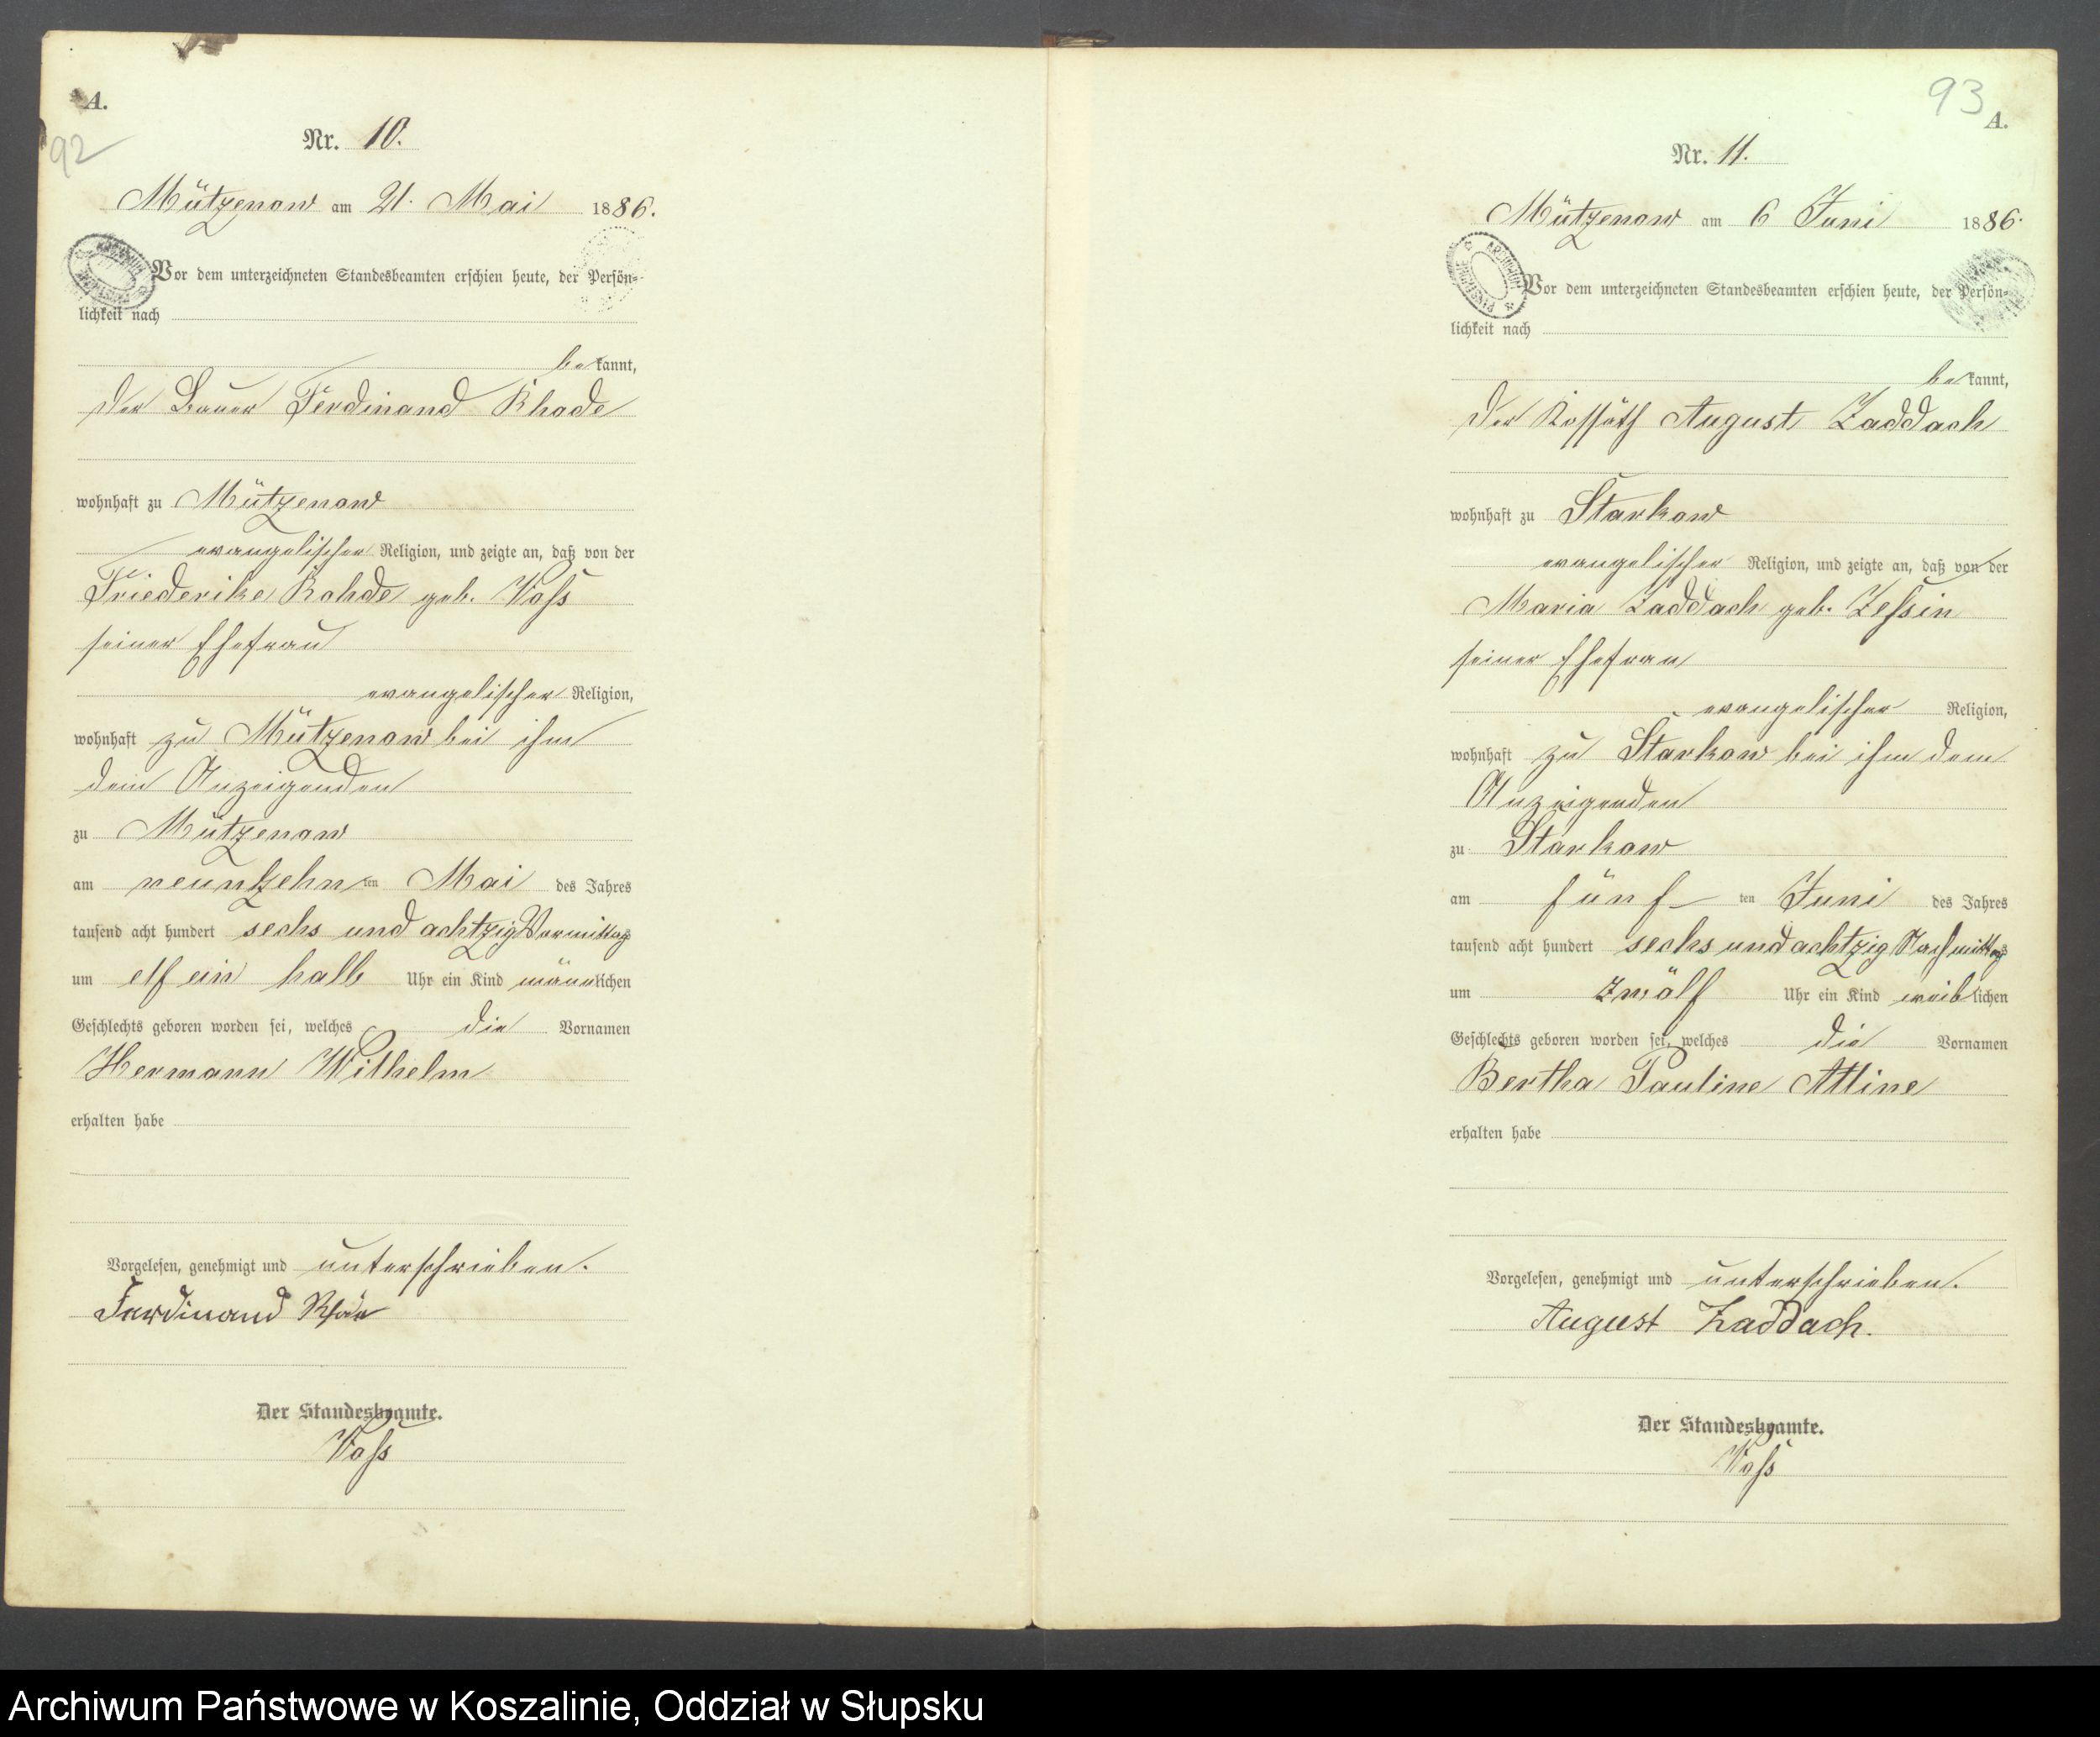 A.
92
Nr. 10.
Mützenow am 21. Mai 1886.
Vor dem unterzeichneten Standesbeamten erschien heute, der Persön-
lichkeit nach
bekannt,
der Bauer Ferdinand Rhode
wohnhaft zu Mützenow
evangelischer Religion, und zeigte an, daß von der
Friederike Rohde geb. Voss
seiner Ehefrau
evangelischer Religion,
wohnhaft zu Mützenow bei ihm
dem Anzeigenden
zu Mützenow
am neunzehnten Mai des Jahres
tausend acht hundert sechs und achtzig Vormittags
um elf ein halb Uhr ein Kind männlichen
Geschlechts geboren worden sei, welches die Vornamen
Hermann Wilhelm
erhalten habe
Vorgelesen, genehmigt und unterschrieben.
Ferdinand
Der Standesbeamte.
Voss
93
A.
Nr. 11.
Mützenow am 6 Juni 1886.
Vor dem unterzeichneten Standesbeamten erschien heute, der Persön-
lichkeit nach
bekannt,
der Kossäth August Zaddach
wohnhaft zu Starkow
evangelischer Religion, und zeigte an, daß von der
Maria Zaddach geb. Zessin
seiner Ehefrau
evangelischer Religion,
wohnhaft zu Starkow bei ihm dem
Anzeigenden
zu Starkow
am fünften Juni des Jahres
tausend acht hundert sechs und achtzig Nachmittags
um zwölf Uhr ein Kind weiblichen
Geschlechts geboren worden sei, welches die Vornamen
Bertha Pauline
erhalten habe
Vorgelesen, genehmigt und unterschrieben.
August Zaddach.
Der Standesbeamte.
Voss
Archiwum Państwowe w Koszalinie, Oddział w Słupsku